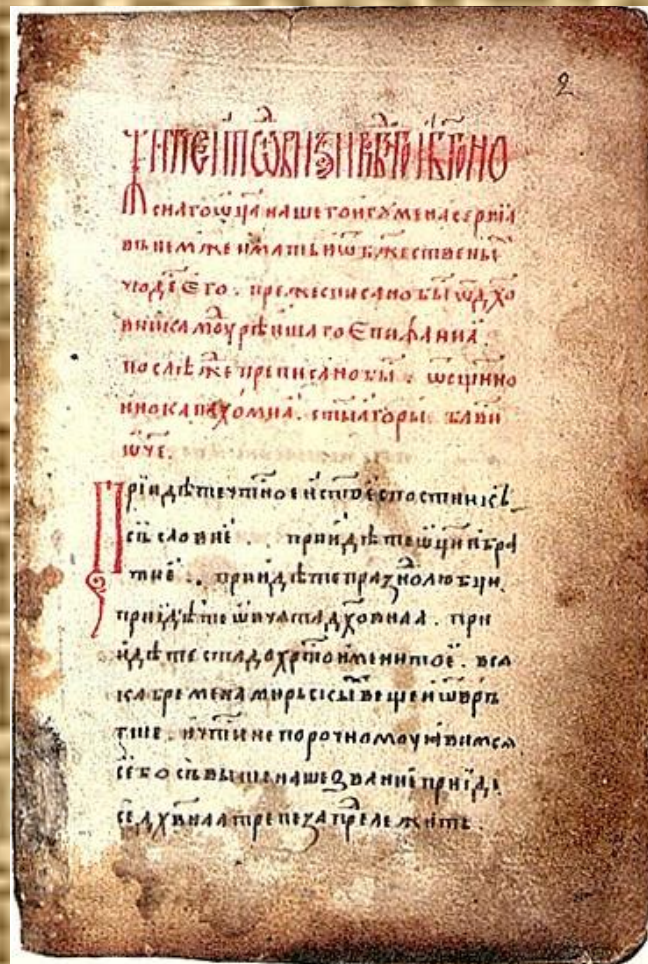 2
снаго ѿца нашего игумена сергїа
въ немже имать и ѿ бжественыⷯ
чюдеⷭ Его . преже списано быⷭ ѿ дхо
вника моудрѣишаго Епифанїа .
послѣже преписано быⷭ . ѿ сщнно
инока пахомїа . стыѧ горы .
ѿче .
Прїидѣте чтное и стое постникѡⷡ
съсловие . прїидѣте ѿци и бра
тие . прїидѣте празнолюбци .
прїидѣте ѿвчата дховнаа . при
идѣте стадо хрто именитое . всѧ
ка бремена мирьскыⷯ вещеи ѿвръ
гше . и чтѣ непорочномоу ꙗвимсѧ
се бо свыше наше званїе прїиде
се дховнаа трепеза прележить .